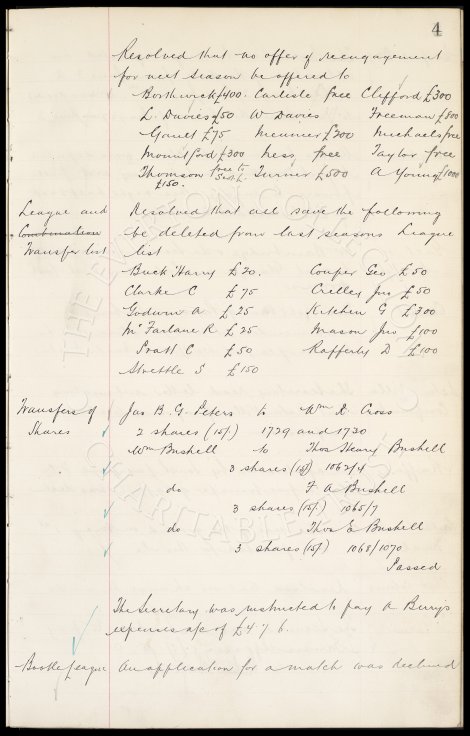 4
Resolved that no offer of reengagement
for next season be offered to
Borthwick £400. Carlisle free Clifford £300
L. Davies £50 W Davies Freeman £800
Gault £75 Meunier £300 Michaels free
Mountford £300 Ness free Taylor free
Thomson free to Scotch Turner £500 A Young £1000
£150.
League and Resolved that all save the following
Combination be deleted from last seasons League
Transfer list list
Buck Harry £20. Couper Geo £50
Clarke C £75 Crelley Jas £50
Godwin A £25 Kitchen G £300
McFarlane R £25 Mason Jas £100
Pratt C £50 Rafferty D £100
Strettle S £150
Transfers of Jas B. G. Peters to Wm R. Cross
Shares 2 shares (15/) 1729 and 1730
Wm Bushell to Thos Henry Bushell
3 shares (15/) 1062/4
do F A Bushell
3 shares (15/) 1065/7
do Thos E Bushell
3 shares (15/) 1068/1070
Passed
The Secretary was instructed to pay A Berry's
expenses a/c of £4. 7. 6.
Bootle League An application for a match was declined
THE EVERTON COLLECTION
CHARITABLE TRUST